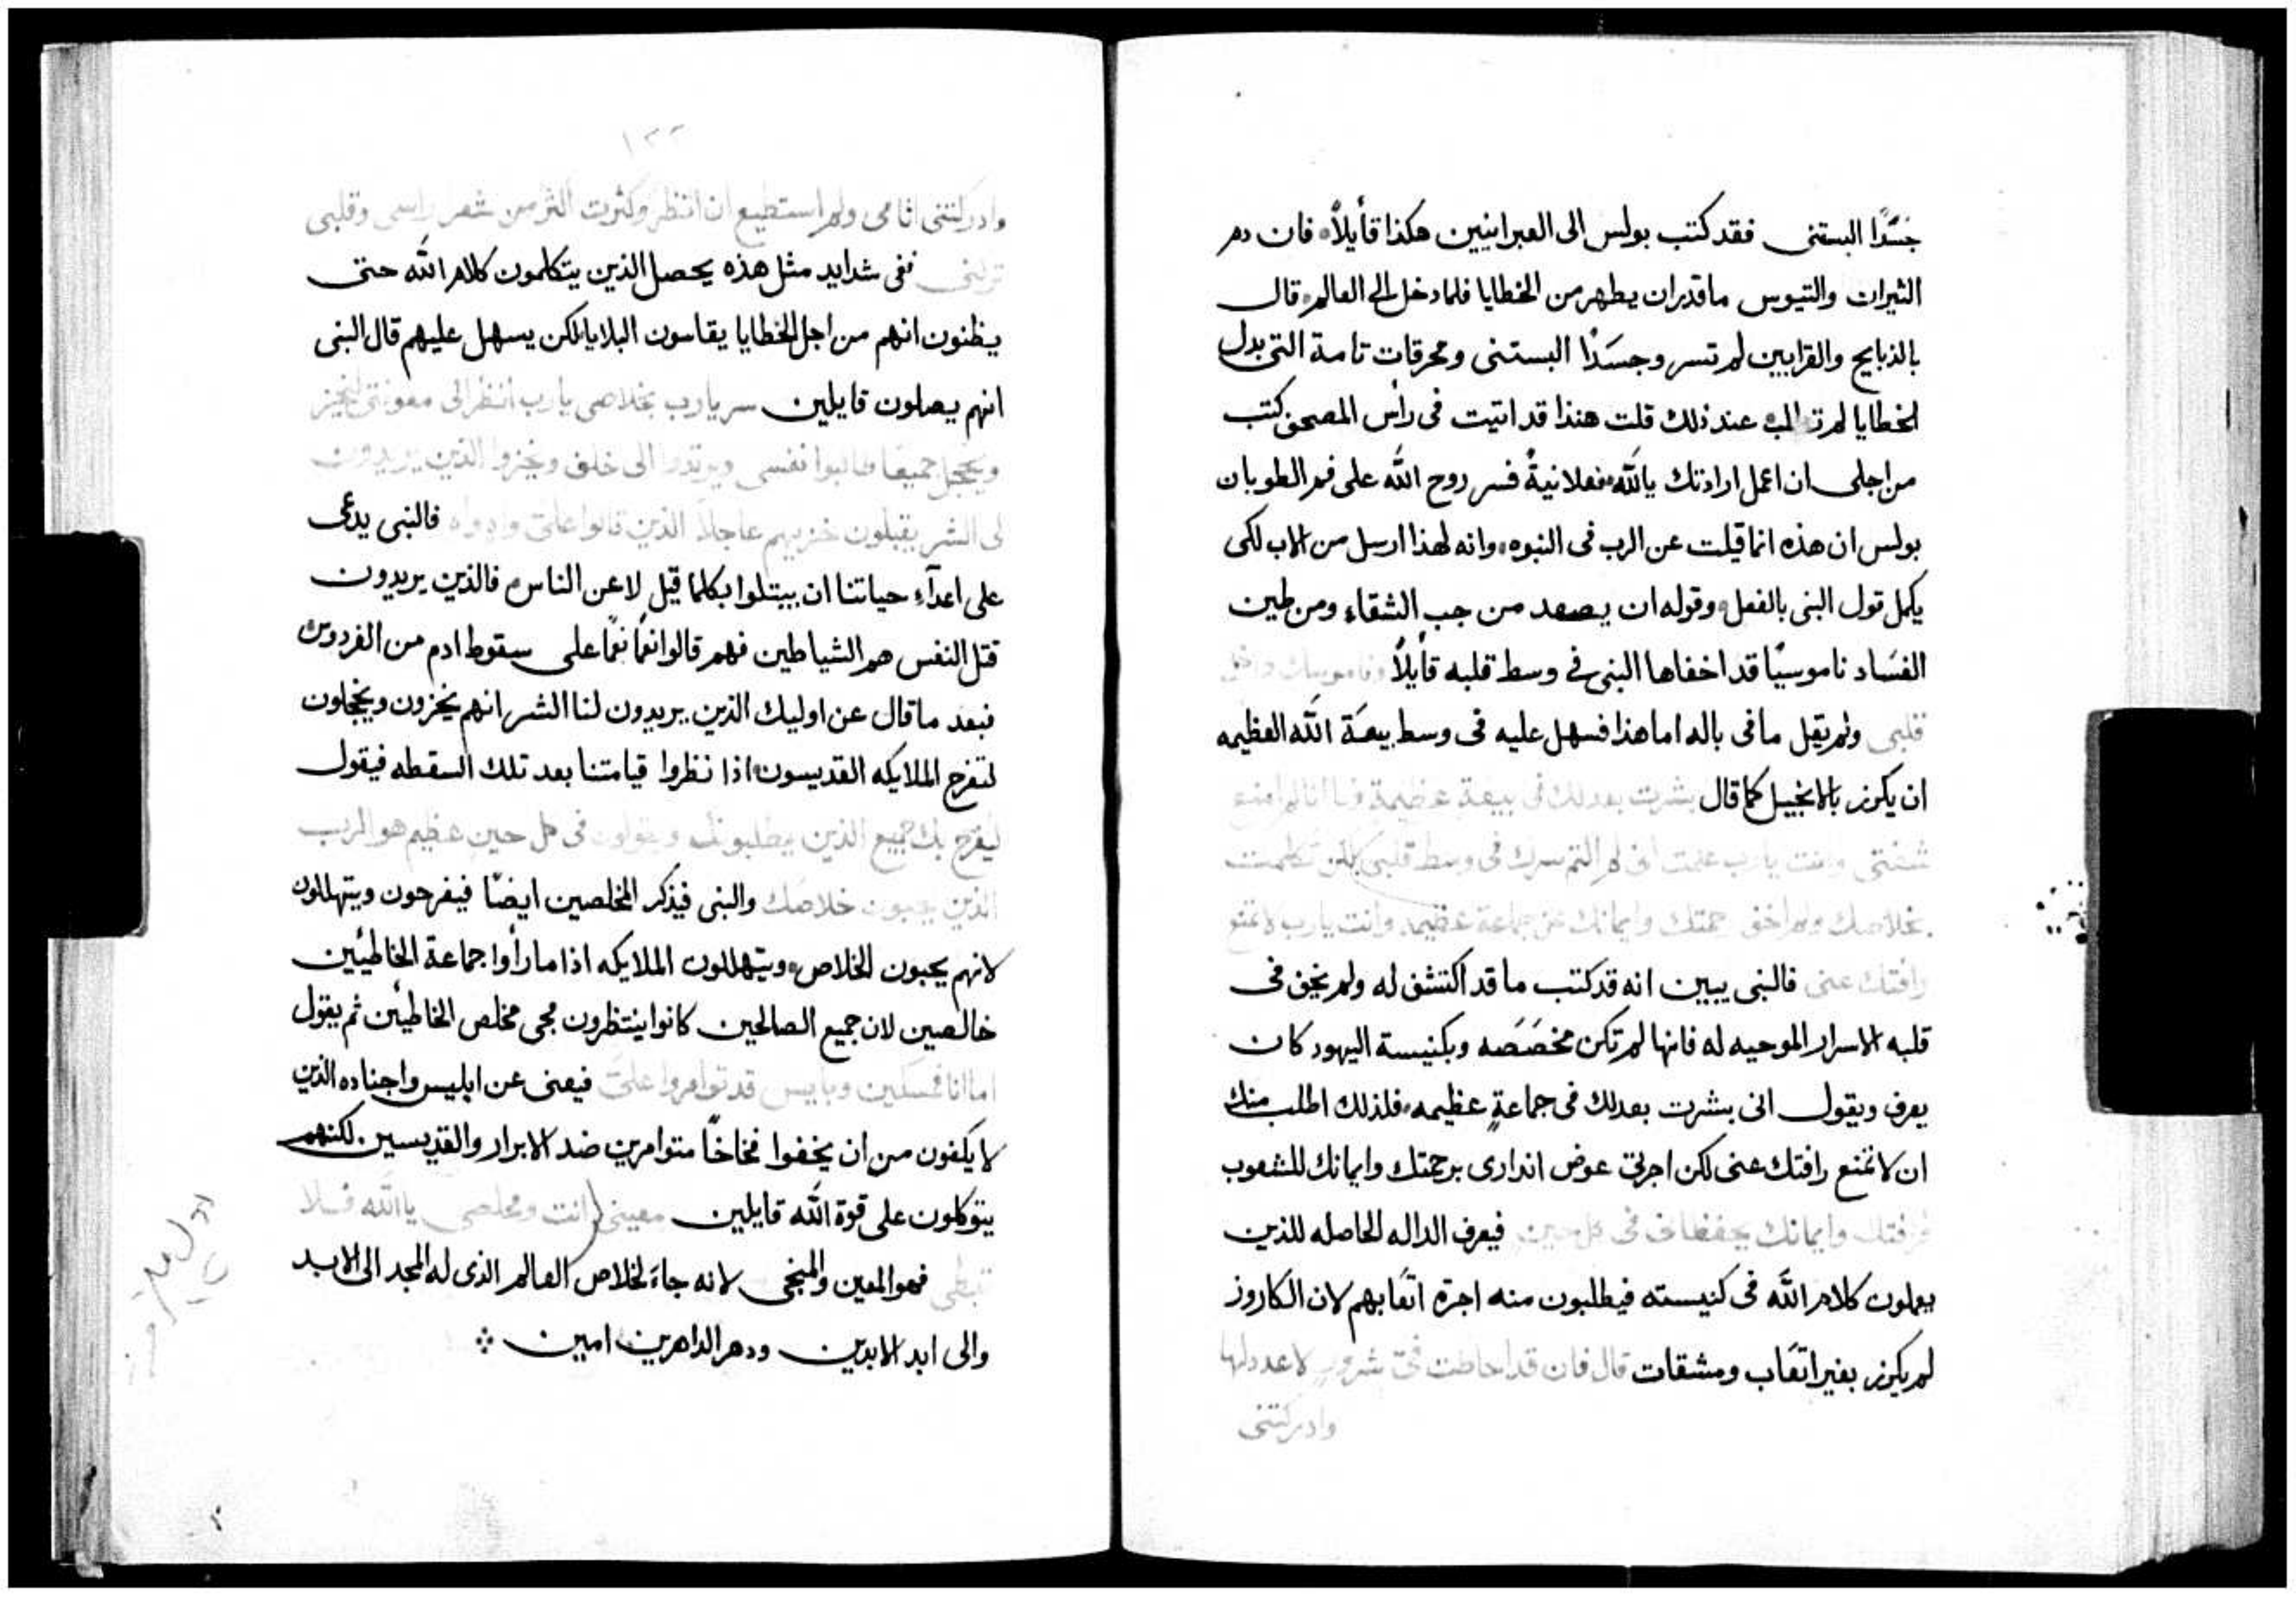 جسَدًا البستنى فقد كتب بولس الى العبرانيين هكذا قأيلاً فان دم
الثيران والتيوس ما قدر ان يطهر من الخطايا فلما دخل الى العالم قال
بالذبايح والقرابين لم تسر وجسَدًا البستنى ومحرقات تامة التى بدل
الخطايا لم عند ذلك قلت هنذا قد اتيت فى رأس المصحف كتب
من اجلى ان اعمل ارادتك يالله فعلانيةً فسر روح الله على فم الطوبان
بولس ان هذه انما قيلت عن الرب فى النبوه وانه لهذا ارسل من الاب لكى
يكمل قول النبى بالفعل وقوله ان يصعد من جب الشقاء ومن طين
الفسَاد ناموسيًا قد اخفاها النبى فى وسط قلبه قأيلاً وناموسك داخل
قلبى ولم يقل ما فى باله اما هذا فسهل عليه فى وسط بيعَة الله العظيمه
ان يكرز بالانجيل كما قال بشرت بعدلك فى بيعة عظيمة وها انا لم امنع
شفتى وانت يارب علمت انى لم اكتم سرك فى وسط قلبى لكن تكلمت
بخلاصك ولم اخف رحمتك وايمانك عن جماعة عظيمه وانت يارب لا تمنع
رافتك عنى فالنبى يبين انه قد كتب ما قد اكتشف له ولم يخف فى
قلبه الاسرار الموحيه له فانها لم تكن مخصَصَه وبكنيسة اليهود كان
يعرف ويقول انى بشرت بعدلك فى جماعةٍ عظيمه فلذلك اطلب منك
ان لا تمنع رافتك عنى لكن اجرنى عوض اندارى برحمتك وايمانك للشعوب
فرافتك وايمانك يحفظانى فى كل حين فيعرف الداله الحاصله للذين
يعملون كلام الله فى كنيسته فيطلبون منه اجرة اتعَابهم لان الكاروز
لم يكرز بغير اتعَاب ومشقات قال فان قد احاطت فىّ شرور لا عدد لها
وادركتنى
١٣٢
وادركتنى اثامى ولم استطيع ان انظر وكثرت اكثر من شعر راسى وقلبى
تركنى ففى شدايد مثل هذه يحصل الذين يتكلمون كلام الله حتى
يظنون انهم من اجل الخطايا يقاسون البلايا لكن يسهل عليهم قال النبى
انهم يصلون قايلين سر يارب بخلاصى يارب انظر الى معونتى ليخز
ويخجل جميعًا طالبوا نفسى ويرتدوا الى خلف ويخزوا الذين يريدون
لى الشر يقبلون خزيهم عاجلاً الذين قالوا علىّ واه واه فالنبى يدعى
على اعدآء حياتنا ان يبتلوا بكلما قيل لا عن الناس فالذين يريدون
قتل النفس هم الشياطين فهم قالوا نعمًا نعمًا على سقوط ادم من الفردوس
فبعد ما قال عن اوليك الذين يريدون لنا الشر انهم يخزون ويخجلون
لتفرح الملايكه القديسون اذا نظروا قيامتنا بعد تلك السقطه فيقول
ليفرح بك جميع الذين يطلبونك ويقولون فى كل حين عظيم هو الرب
الذين يحبون خلاصَك والنبى فيذكر المخلصين ايضًا فيفرحون ويتهللون
لانهم يحبون الخلاص ويتهللون الملايكه اذا ما رأوا جماعة الخاطيئين
خالصين لان جميع الصالحين كانوا ينتظرون مجى مخلص الخاطيئن ثم يقول
اما انا فمسكين وبايس قد توامروا علىّ فيعنى عن ابليس واجناده الذين
لا يكفون من ان يخفوا فخاخًا متوامرين ضد الابرار والقديسين لكنهم
يتوكلون على قوة الله قايلين معينى انت ومخلصى يا الله فلا
تبطى فهو المعين والمنجى لانه جاء لخلاص العالم الذى له المجد الى الابد
والى ابد الابدين ودهر الداهرين امين